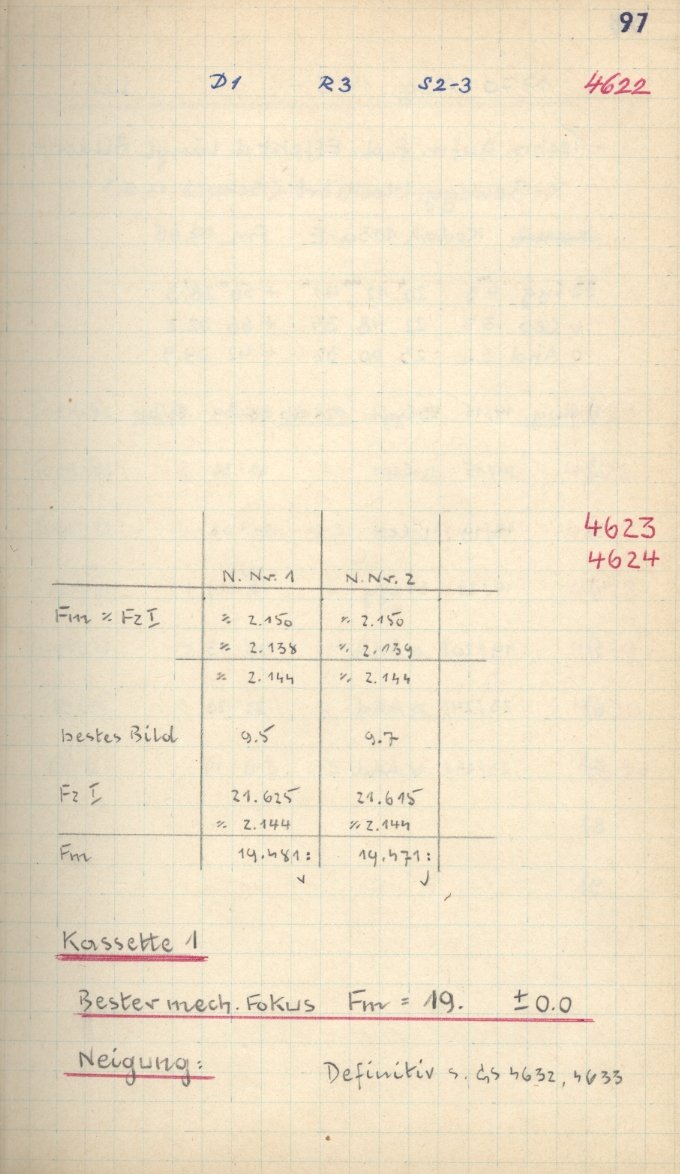 97
D1 R3 S2-3 4622
4623
4624
N. Nr. 1 N. Nr. 2
Fm ٪ Fz I ٪ 2.150 ٪ 2.150
٪ 2.138 ٪ 2.139
٪ 2.144 ٪ 2.144
bestes Bild 9.5 9.7
Fz I 21.625 21.615
٪ 2.144 ٪ 2.144
Fm 19.481: 19.471:
Kassette 1
Bester mech. Fokus Fm = 19. ±0.0
Neigung: Definitiv s. GS 4632, 4633